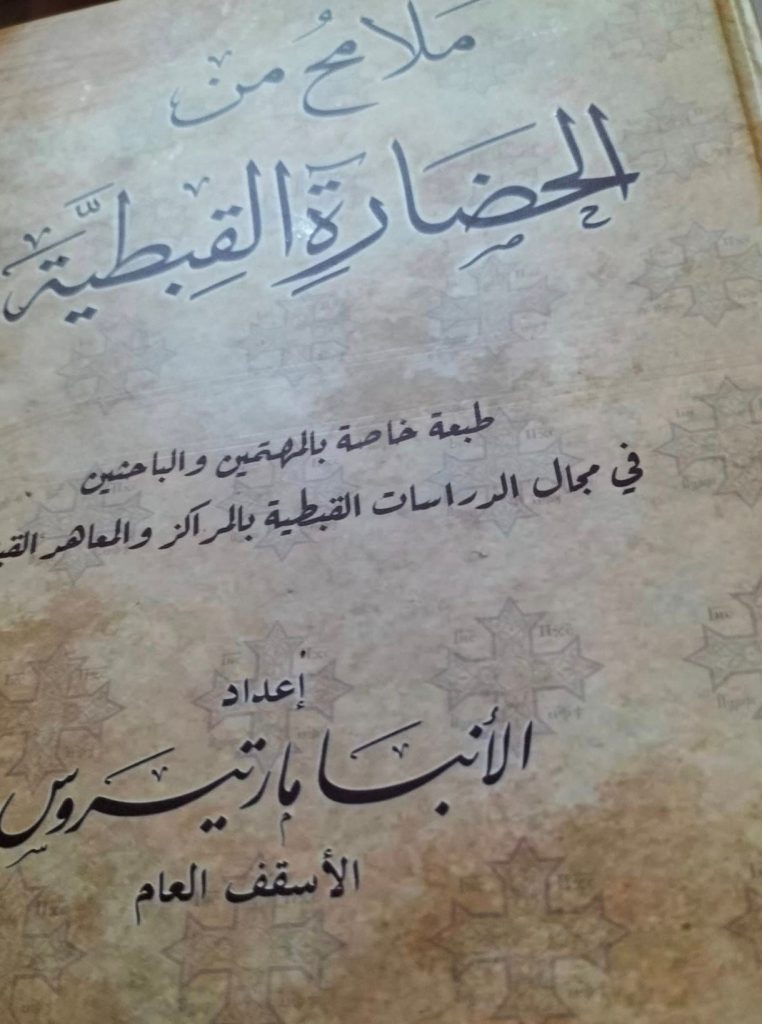 ملامح من
الحضارة القبطية
طبعة خاصة بالمهتمين والباحثين
في مجال الدراسات القبطية بالمراكز والمعاهد
إعداد
الأنبا مارتيروس
الأسقف العام